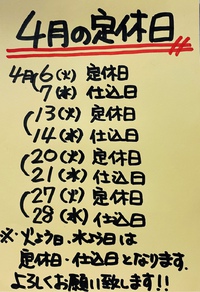 4月の定休日
4月6(火) 定休日
7(水) 仕込日
13(火) 定休日
14(水) 仕込日
20(火) 定休日
21(水) 仕込日
27(火) 定休日
28(水) 仕込日
※火よう日、水よう日は
定休日・仕込日となります.
よろしくお願い致します!!